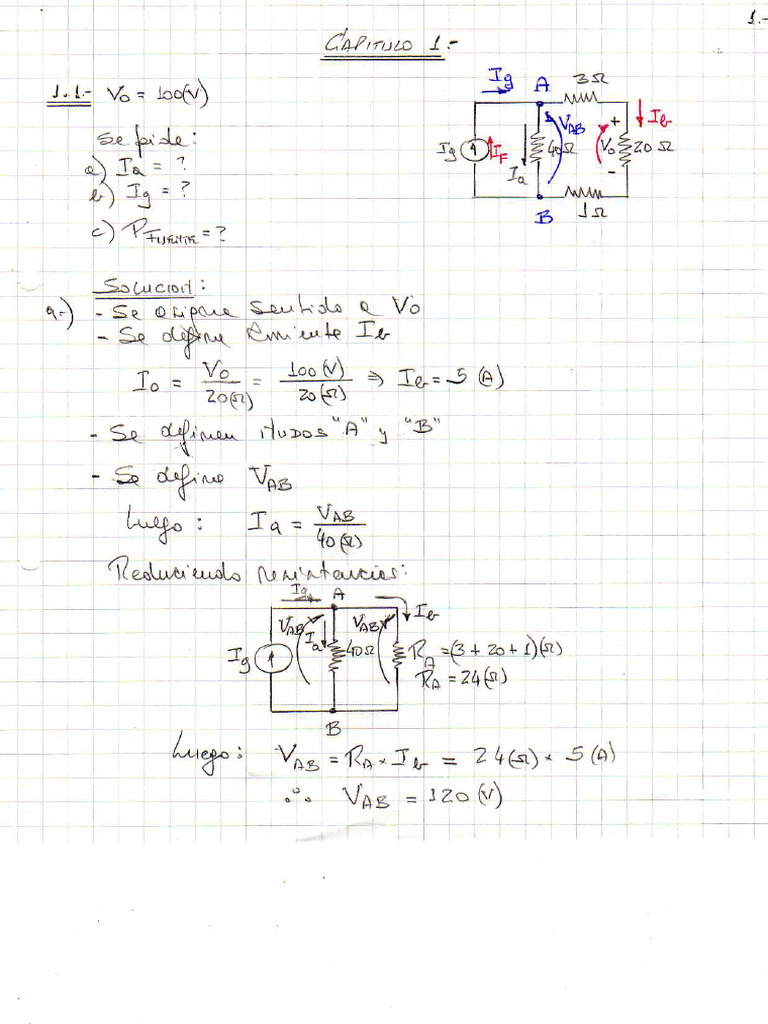 1.-
CAPITULO 1.-
1.1.- Vo = 100(V)
Se pide:
a) Ia = ?
b) Ig = ?
c) P FUENTE = ?
Ig
A
3Ω
Ib
VAB
+
Ig
IF
40Ω
Vo
20Ω
Ia
-
B
1Ω
SOLUCION:
a.-) - Se asigna sentido a Vo
- Se define corriente Ib
Io = Vo/20(Ω) = 100(V)/20(Ω) ⇒ Ib = 5 (A)
- Se definen nudos "A" y "B"
- Se define VAB
Luego: Ia = VAB/40(Ω)
Reduciendo resistencias:
Ig
A
Ib
VAB
Ia
VAB
Ig
40Ω
RA = (3 + 20 + 1)(Ω)
RA = 24(Ω)
B
Luego: VAB = RA × Ib = 24(Ω) × 5(A)
∴ VAB = 120 (V)